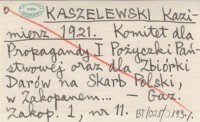 KASZELEWSKI Kazi-
mierz 1921. Komitet dla
Propagandy I Pożyczki Pań-
stwowej oraz dla Zbiórki
Darów na Skarb Polski,
w Zakopanem... – Gaz.
Zakop. 1, nr 11.